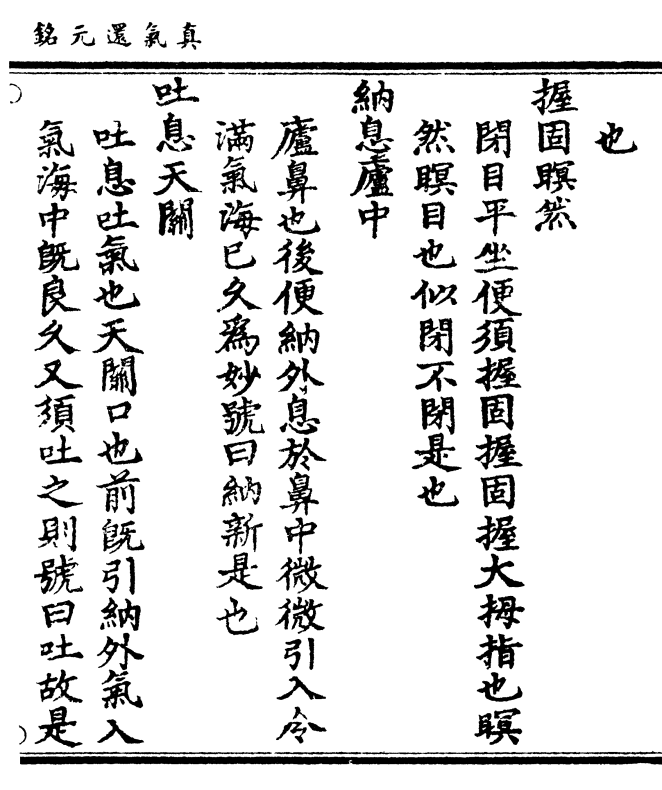 真氣還元銘
也
握固瞑然
閉目平坐便須握固握固握大拇指也瞑
然瞑目也似閉不閉是也
納息廬中
廬鼻也後便納外息於鼻中微微引入令
滿氣海已久爲妙號曰納新是也
吐息天關
吐息吐氣也天關口也前旣引納外氣入
氣海中旣良久又須吐之則號曰吐故是